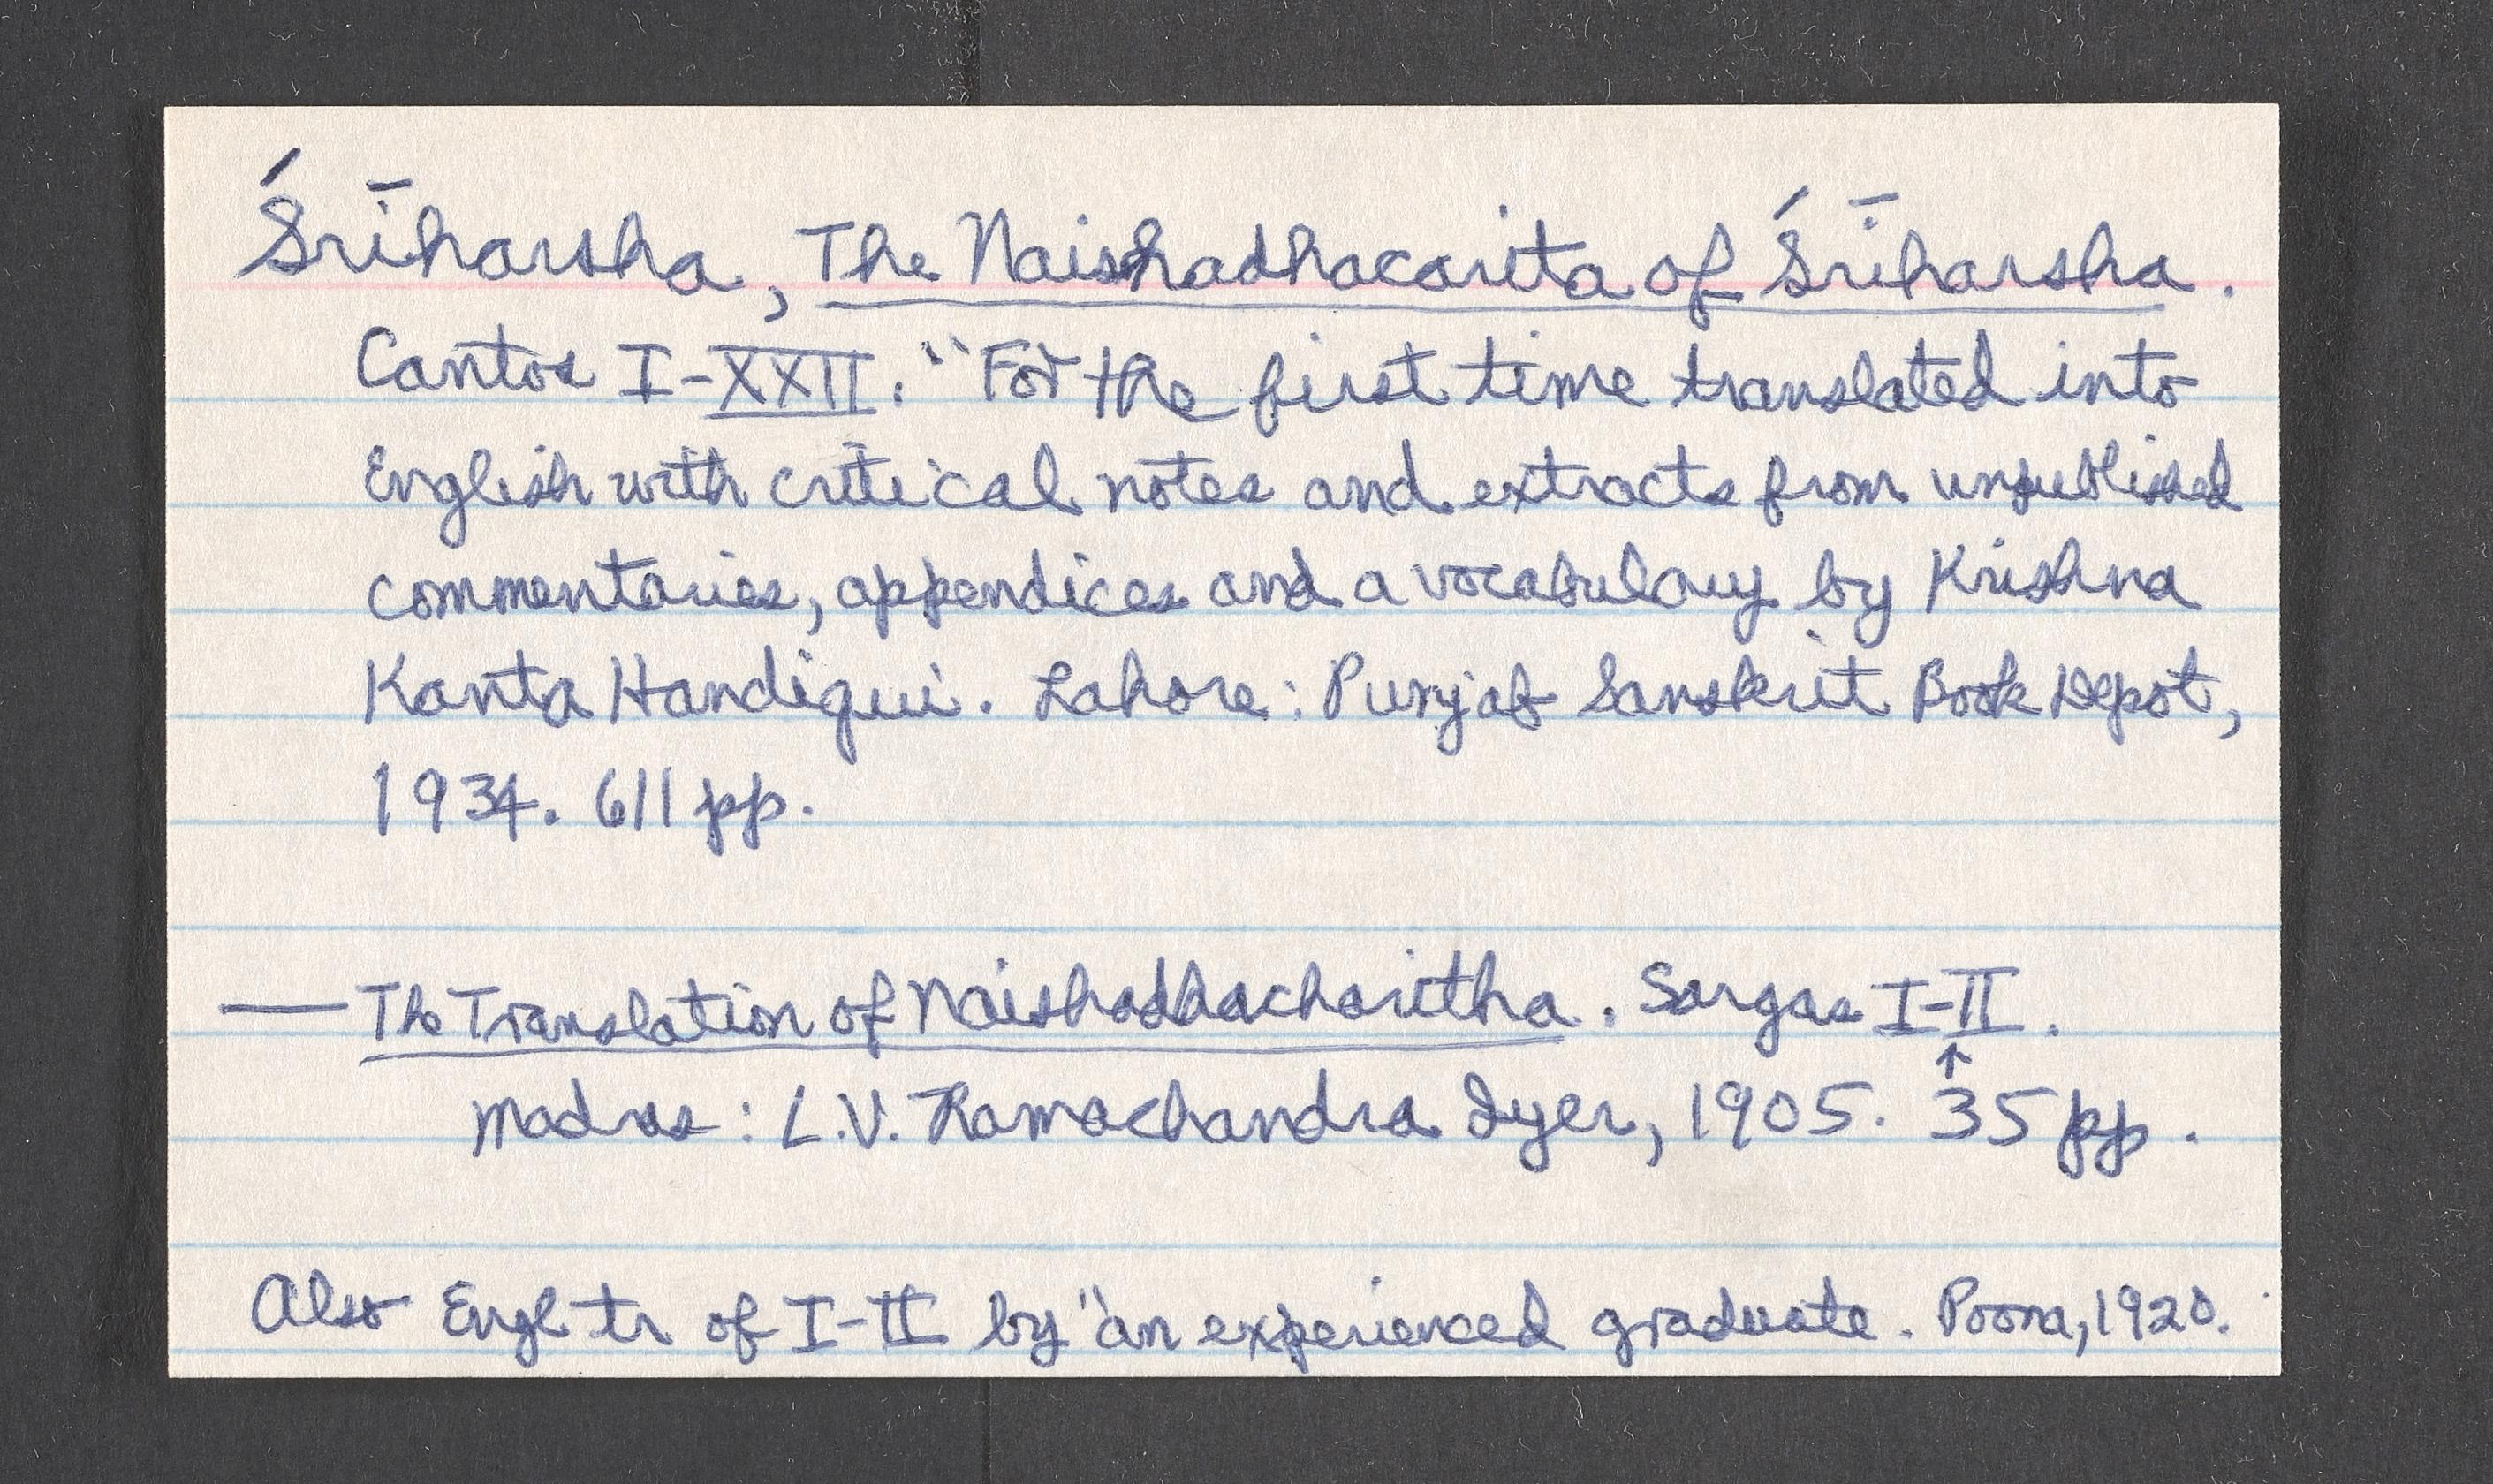 Śrīharsha, The Naishadhacarita of Śrīharsha.
Cantos I-XXII. "For the first time translated into
English with critical notes and extracts from unpublished
commentaries, appendices and a vocabulary by Krishna
Kanta Handiqui. Lahore: Punjab Sanskrit Book Depot,
1934. 611 pp.
— The Translation of Naishadhacharitha. Sargas I-II.
↑
Madras: L.V. Ramachandra Iyer, 1905. 35 pp.
Also Engl tr of I-II by "an experienced graduate. Poona, 1920.